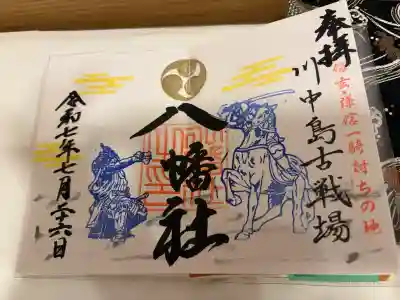 奉拝
川中島古戦場
信玄・謙信一騎討ちの地
八幡社
令和七年七月二十六日